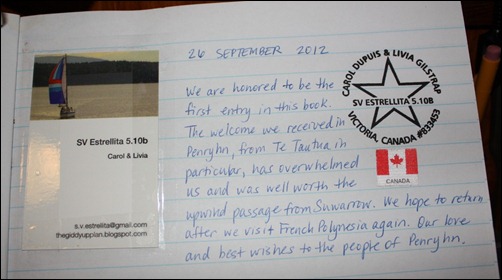 26 SEPTEMBER 2012
We are honored to be the
first entry in this book.
The welcome we received in
Penryhn, from Te Tautua in
particular, has overwhelmed
us and was well worth the
upwind passage from Suwarrow. We hope to return
after we visit French Polynesia again. Our love
and best wishes to the people of Penryhn.
SV Estrellita 5.10b
Carol & Livia
s.v.estrellita@gmail.com
thegiddyupplan.blogspot.com
CAROL DUPUIS & LIVIA GILSTRAP
SV ESTRELLITA 5.10B
VICTORIA, CANADA #833453
CANADA